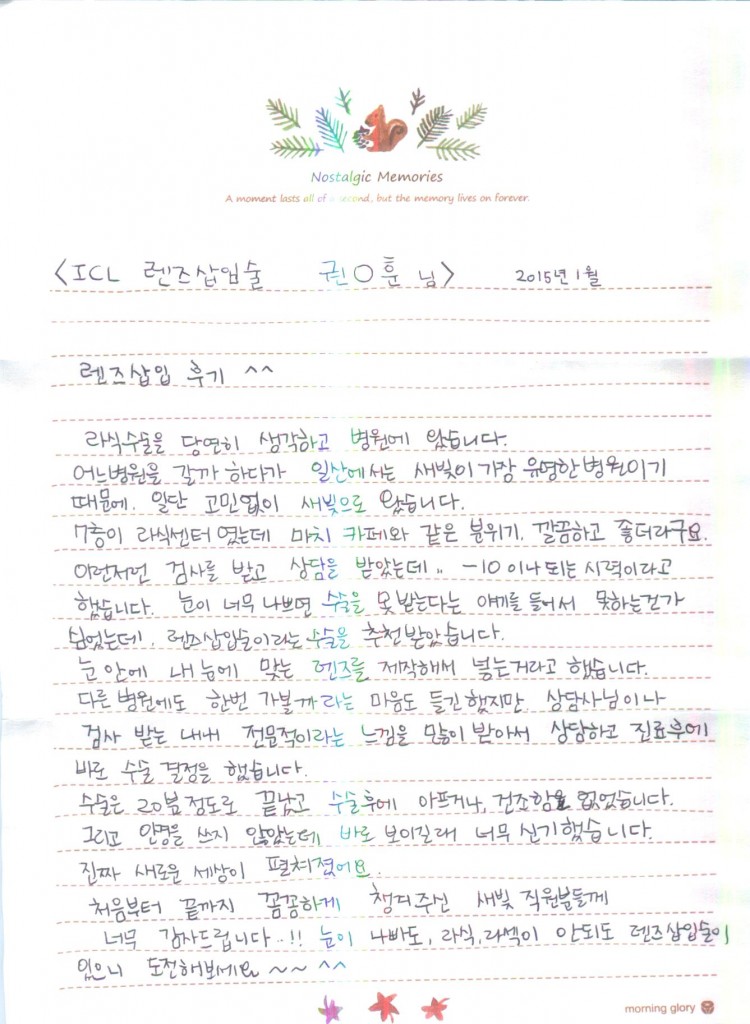 Nostalgic Memories
A moment lasts all of a second, but the memory lives on forever.
<ICL 렌즈삽입술 권○훈 님> 2015년 1월
렌즈삽입 후기 ^^
라식수술을 당연히 생각하고 병원에 왔습니다.
어느병원을 갈까 하다가 일산에서는 새빛이 가장 유명한 병원이기
때문에. 일단 고민없이 새빛으로 왔습니다.
7층이 라식센터였는데 마치 카페와 같은 분위기. 깔끔하고 좋더라구요.
이런저런 검사를 받고 상담을 받았는데.. -10 이나 되는 시력이라고
했습니다. 눈이 너무 나쁘면 수술을 못받는다는 얘기를 들어서 못하는건가
싶었는데. 렌즈삽입술이라는 수술을 추천받았습니다.
눈 안에 내 눈에 맞는 렌즈를 제작해서 넣는거라고 했습니다.
다른 병원에도 한번 가볼까라는 마음도 들긴했지만 상담사님이나
검사 받는 내내 전문적이라는 느낌을 많이 받아서 상담하고 진료후에
바로 수술 결정을 했습니다.
수술은 20분정도로 끝났고 수술후에 아프거나, 건조함은 없었습니다.
그리고 안경을 쓰지 않았는데 바로 보이길래 너무 신기했습니다.
진짜 새로운 세상이 펼쳐졌어요.
처음부터 끝까지 꼼꼼하게 챙겨주신 새빛 직원분들께
너무 감사드립니다..!! 눈이 나빠도, 라식,라섹이 안되도 렌즈삽입술이
있으니 도전해보세요~~ ^^
morning glory